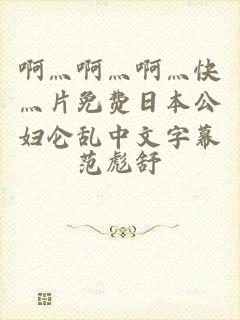 啊灬啊灬啊灬快
灬片免费日本公
妇仑乱中文字幕
范彪舒